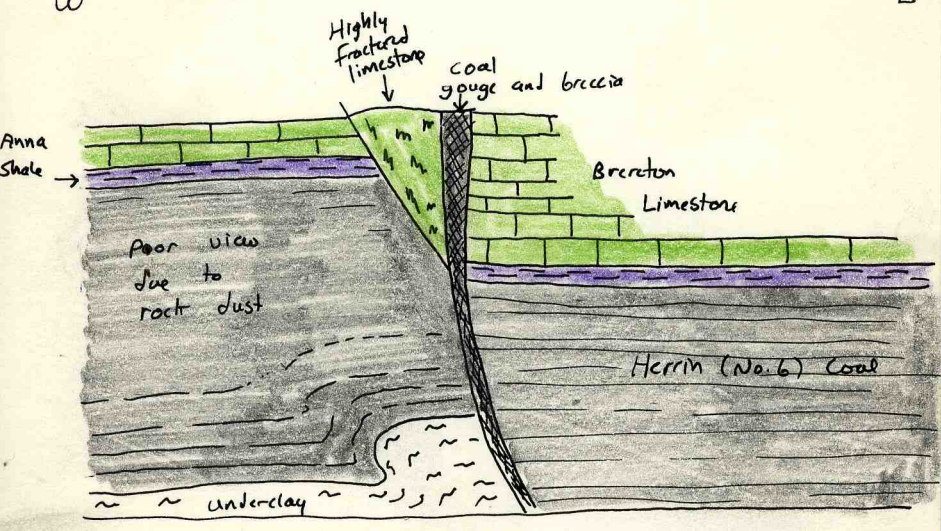 W
E
Highly
fractured
limestone
coal
gouge and breccia
Anna
Shale
Brereton
Limestone
Poor view
due to
rock dust
Herrin (No. 6) Coal
underclay